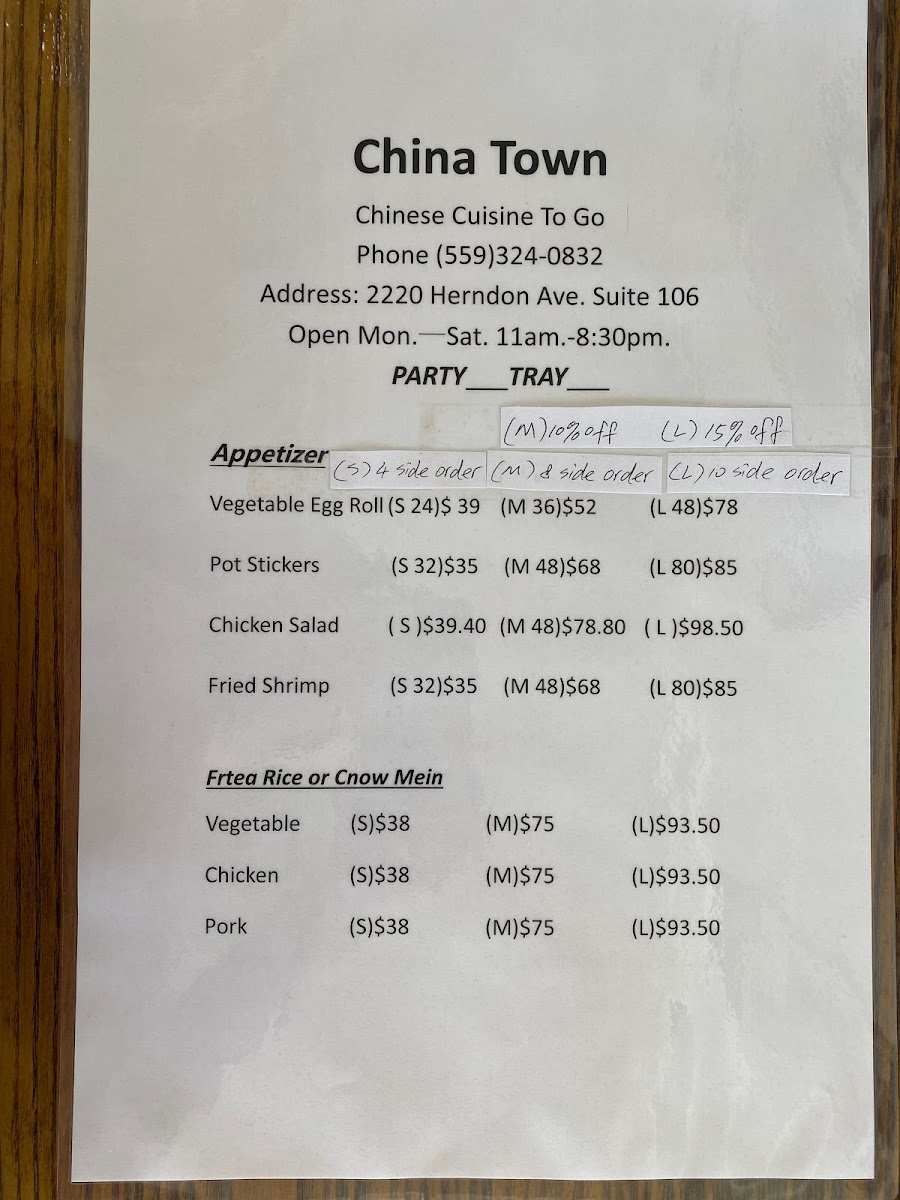 China Town
Chinese Cuisine To Go
Phone (559)324-0832
Address: 2220 Herndon Ave. Suite 106
Open Mon.—Sat. 11am.-8:30pm.
PARTY___TRAY___
(M) 10% off (L) 15% off
Appetizer (S) 4 side order (M) 8 side order (L) 10 side order
Vegetable Egg Roll (S 24)$ 39 (M 36)$52 (L 48)$78
Pot Stickers (S 32)$35 (M 48)$68 (L 80)$85
Chicken Salad ( S )$39.40 (M 48)$78.80 ( L )$98.50
Fried Shrimp (S 32)$35 (M 48)$68 (L 80)$85
Frtea Rice or Cnow Mein
Vegetable (S)$38 (M)$75 (L)$93.50
Chicken (S)$38 (M)$75 (L)$93.50
Pork (S)$38 (M)$75 (L)$93.50